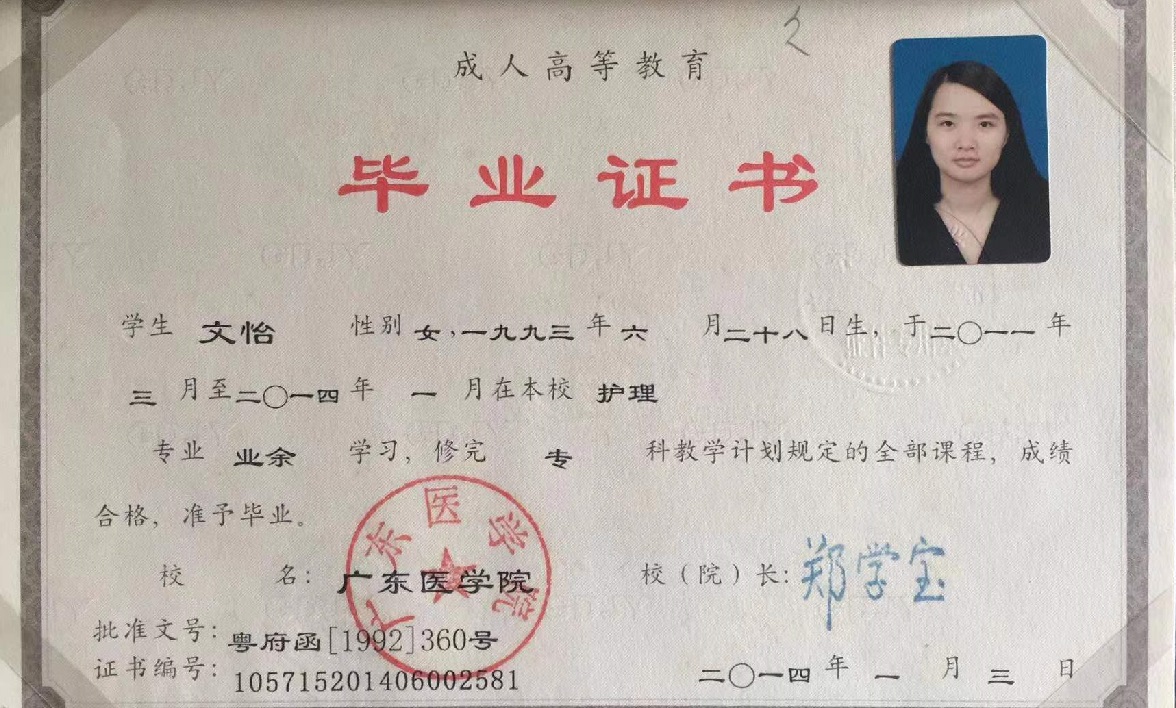 2
成人高等教育
毕业证书
学生 文怡 性别 女,一九九三 年 六 月 二十八 日生，于 二〇一一 年
三 月至 二〇一四 年 一 月在本校 护理
专业 业余 学习，修完 专 科教学计划规定的全部课程，成绩
合格，准予毕业。
广东医学院
校 名：广东医学院 校（院）长：郑学宝
批准文号：粤府函[1992]360号
证书编号：105715201406002581 二〇一四 年 一 月 三 日